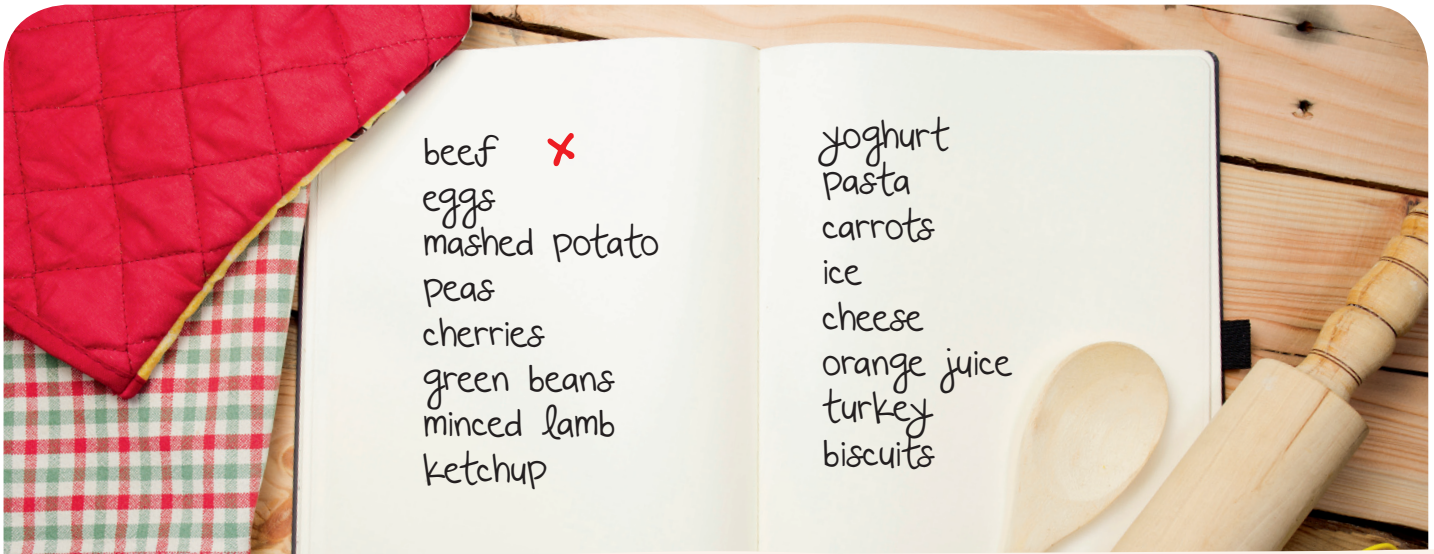 beef
eggs
mashed potato
peas
cherries
green beans
minced lamb
ketchup
yoghurt
pasta
carrots
ice
cheese
orange juice
turkey
biscuits